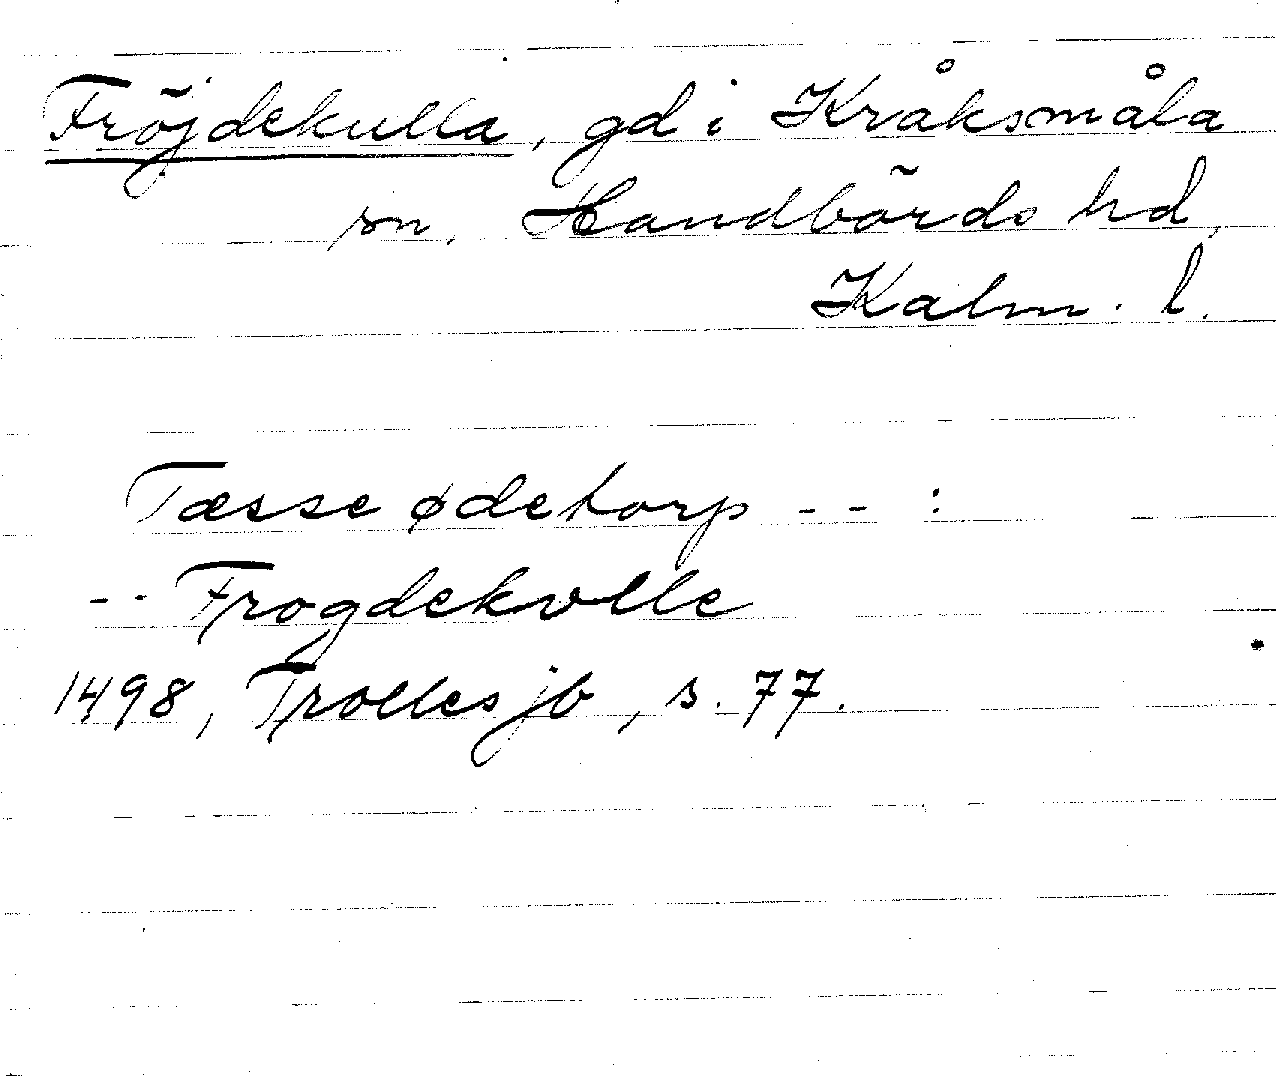 Fröjdekulla, gd i Kråksmåla
sn, Handbörds hd,
Kalm. l.
Tæsse ødetorp -- :
-- Frogdekvlle
1498, Trolles jb, s. 77.